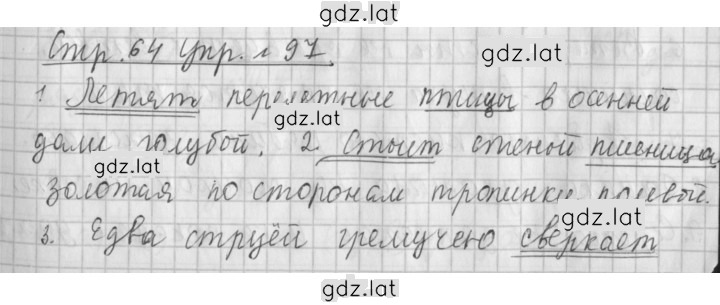 gdz.lat
Стр. 64 упр. № 97.
gdz.lat
1 Летят перелетные птицы в осенней
gdz.lat
дали голубой. 2. Стоит стеной пшеница,
gdz.lat
золотая по сторонам тропинки полевой.
gdz.lat
3. Едва струёй гремучею сверкает
gdz.lat